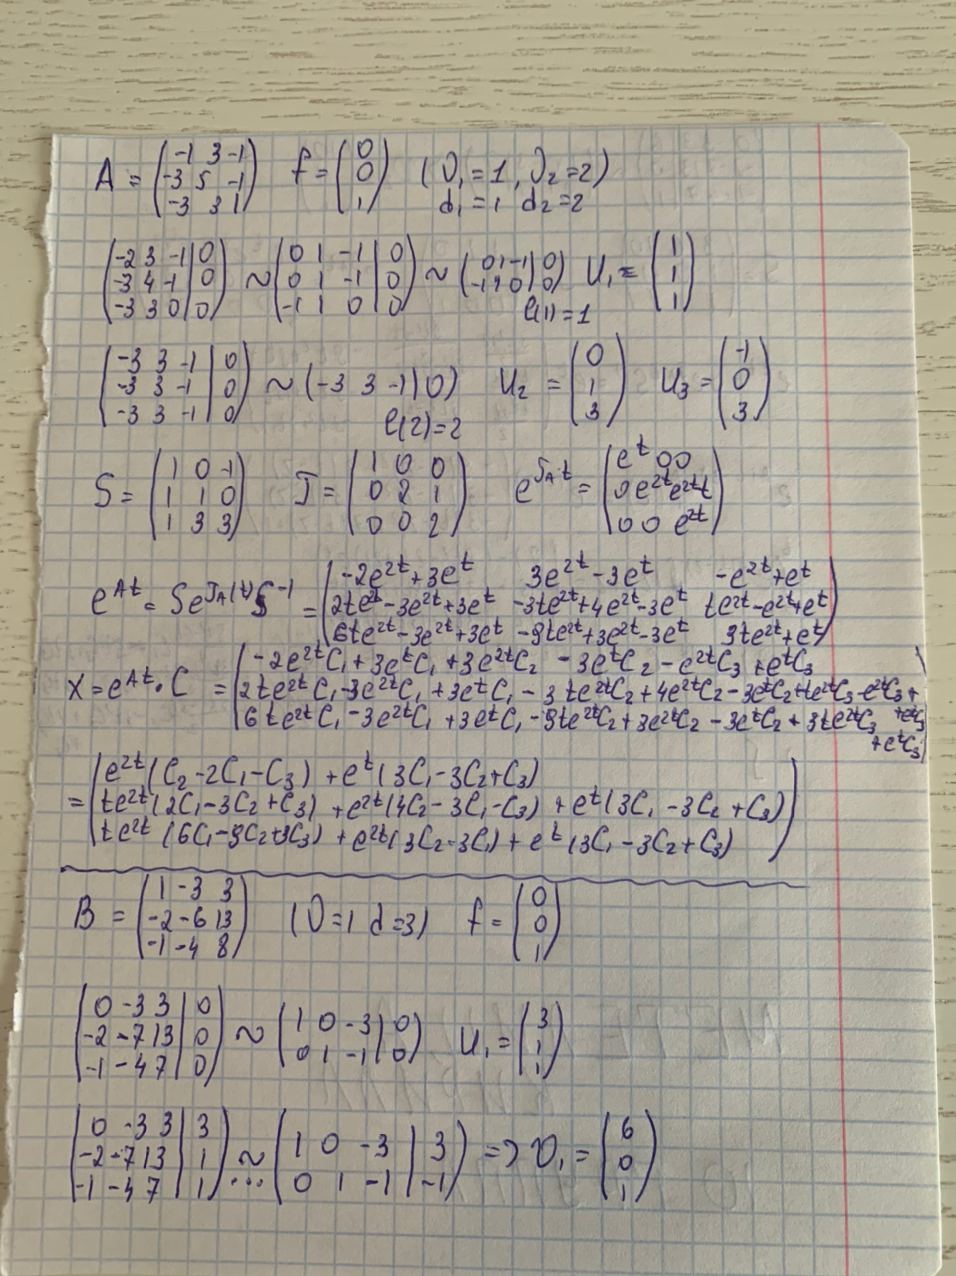 A = (-1 3 -1; -3 5 -1; -3 3 1) f = (0; 0; 1) (λ₁ = 1, λ₂ = 2)
d₁ = 1 d₂ = 2
(-2 3 -1 | 0; -3 4 -1 | 0; -3 3 0 | 0) ~ (0 1 -1 | 0; 0 1 -1 | 0; -1 1 0 | 0) ~ (0 1 -1 | 0; -1 1 0 | 0) U₁ = (1; 1; 1)
l(1) = 1
(-3 3 -1 | 0; -3 3 -1 | 0; -3 3 -1 | 0) ~ (-3 3 -1 | 0) U₂ = (0; 1; 3) U₃ = (-1; 0; 3)
l(2) = 2
S = (1 0 -1; 1 1 0; 1 3 3) J = (1 0 0; 0 2 1; 0 0 2) e^{J_A·t} = (e^t 0 0; 0 e^{2t} e^{2t}t; 0 0 e^{2t})
e^{At} = Se^{J_A(t)}S⁻¹ = (-2e^{2t}+3e^t 3e^{2t}-3e^t -e^{2t}+e^t; 2te^{2t}-3e^{2t}+3e^t -3te^{2t}+4e^{2t}-3e^t te^{2t}-e^{2t}+e^t; 6te^{2t}-3e^{2t}+3e^t -9te^{2t}+3e^{2t}-3e^t 3te^{2t}+e^t)
X = e^{At}·C = (-2e^{2t}C₁+3e^tC₁+3e^{2t}C₂-3e^tC₂-e^{2t}C₃+e^tC₃; 2te^{2t}C₁-3e^{2t}C₁+3e^tC₁-3te^{2t}C₂+4e^{2t}C₂-3e^tC₂+te^{2t}C₃-e^{2t}C₃++e^tC₃; 6te^{2t}C₁-3e^{2t}C₁+3e^tC₁-9te^{2t}C₂+3e^{2t}C₂-3e^tC₂+3te^{2t}C₃+e^tC₃)
= (e^{2t}(C₂-2C₁-C₃)+e^t(3C₁-3C₂+C₃); te^{2t}(2C₁-3C₂+C₃)+e^{2t}(4C₂-3C₁-C₃)+e^t(3C₁-3C₂+C₃); te^{2t}(6C₁-9C₂+3C₃)+e^{2t}(3C₂-3C₁)+e^t(3C₁-3C₂+C₃))
B = (1 -3 3; -2 -6 13; -1 -4 8) (λ=1 d=3) f = (0; 0; 1)
(0 -3 3 | 0; -2 -7 13 | 0; -1 -4 7 | 0) ~ (1 0 -3 | 0; 0 1 -1 | 0) U₁ = (3; 1; 1)
(0 -3 3 | 3; -2 -7 13 | 1; -1 -4 7 | 1) ~ ... (1 0 -3 | 3; 0 1 -1 | -1) => V₁ = (6; 0; 1)